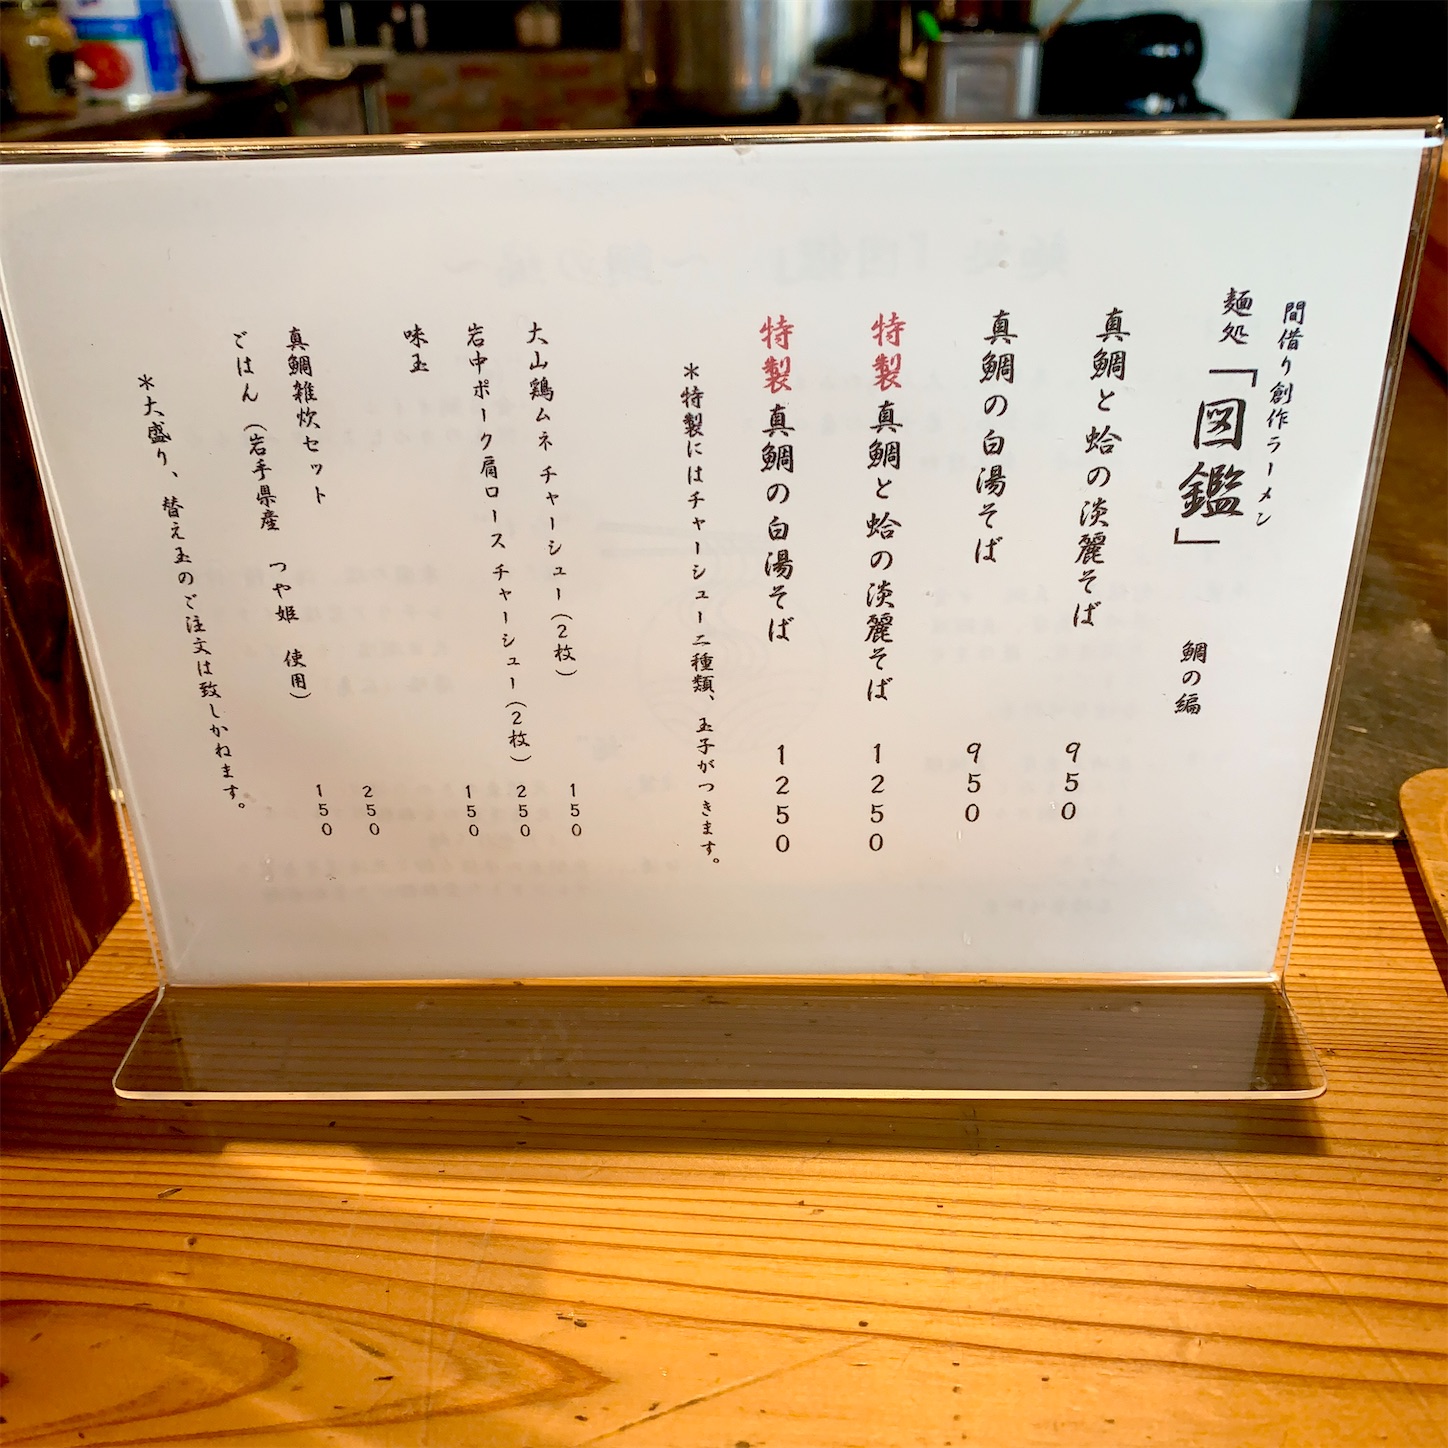 間借り創作ラーメン
麺処「図鑑」 鯛の編
真鯛と蛤の淡麗そば 950
真鯛の白湯そば 950
特製真鯛と蛤の淡麗そば 1250
特製真鯛の白湯そば 1250
＊特製にはチャーシュー二種類、玉子がつきます。
大山鶏ムネチャーシュー(2枚) 150
岩中ポーク肩ロースチャーシュー(2枚) 250
味玉 150
真鯛雑炊セット 250
ごはん(岩手県産 つや姫 使用) 150
＊大盛り、替え玉のご注文は致しかねます。